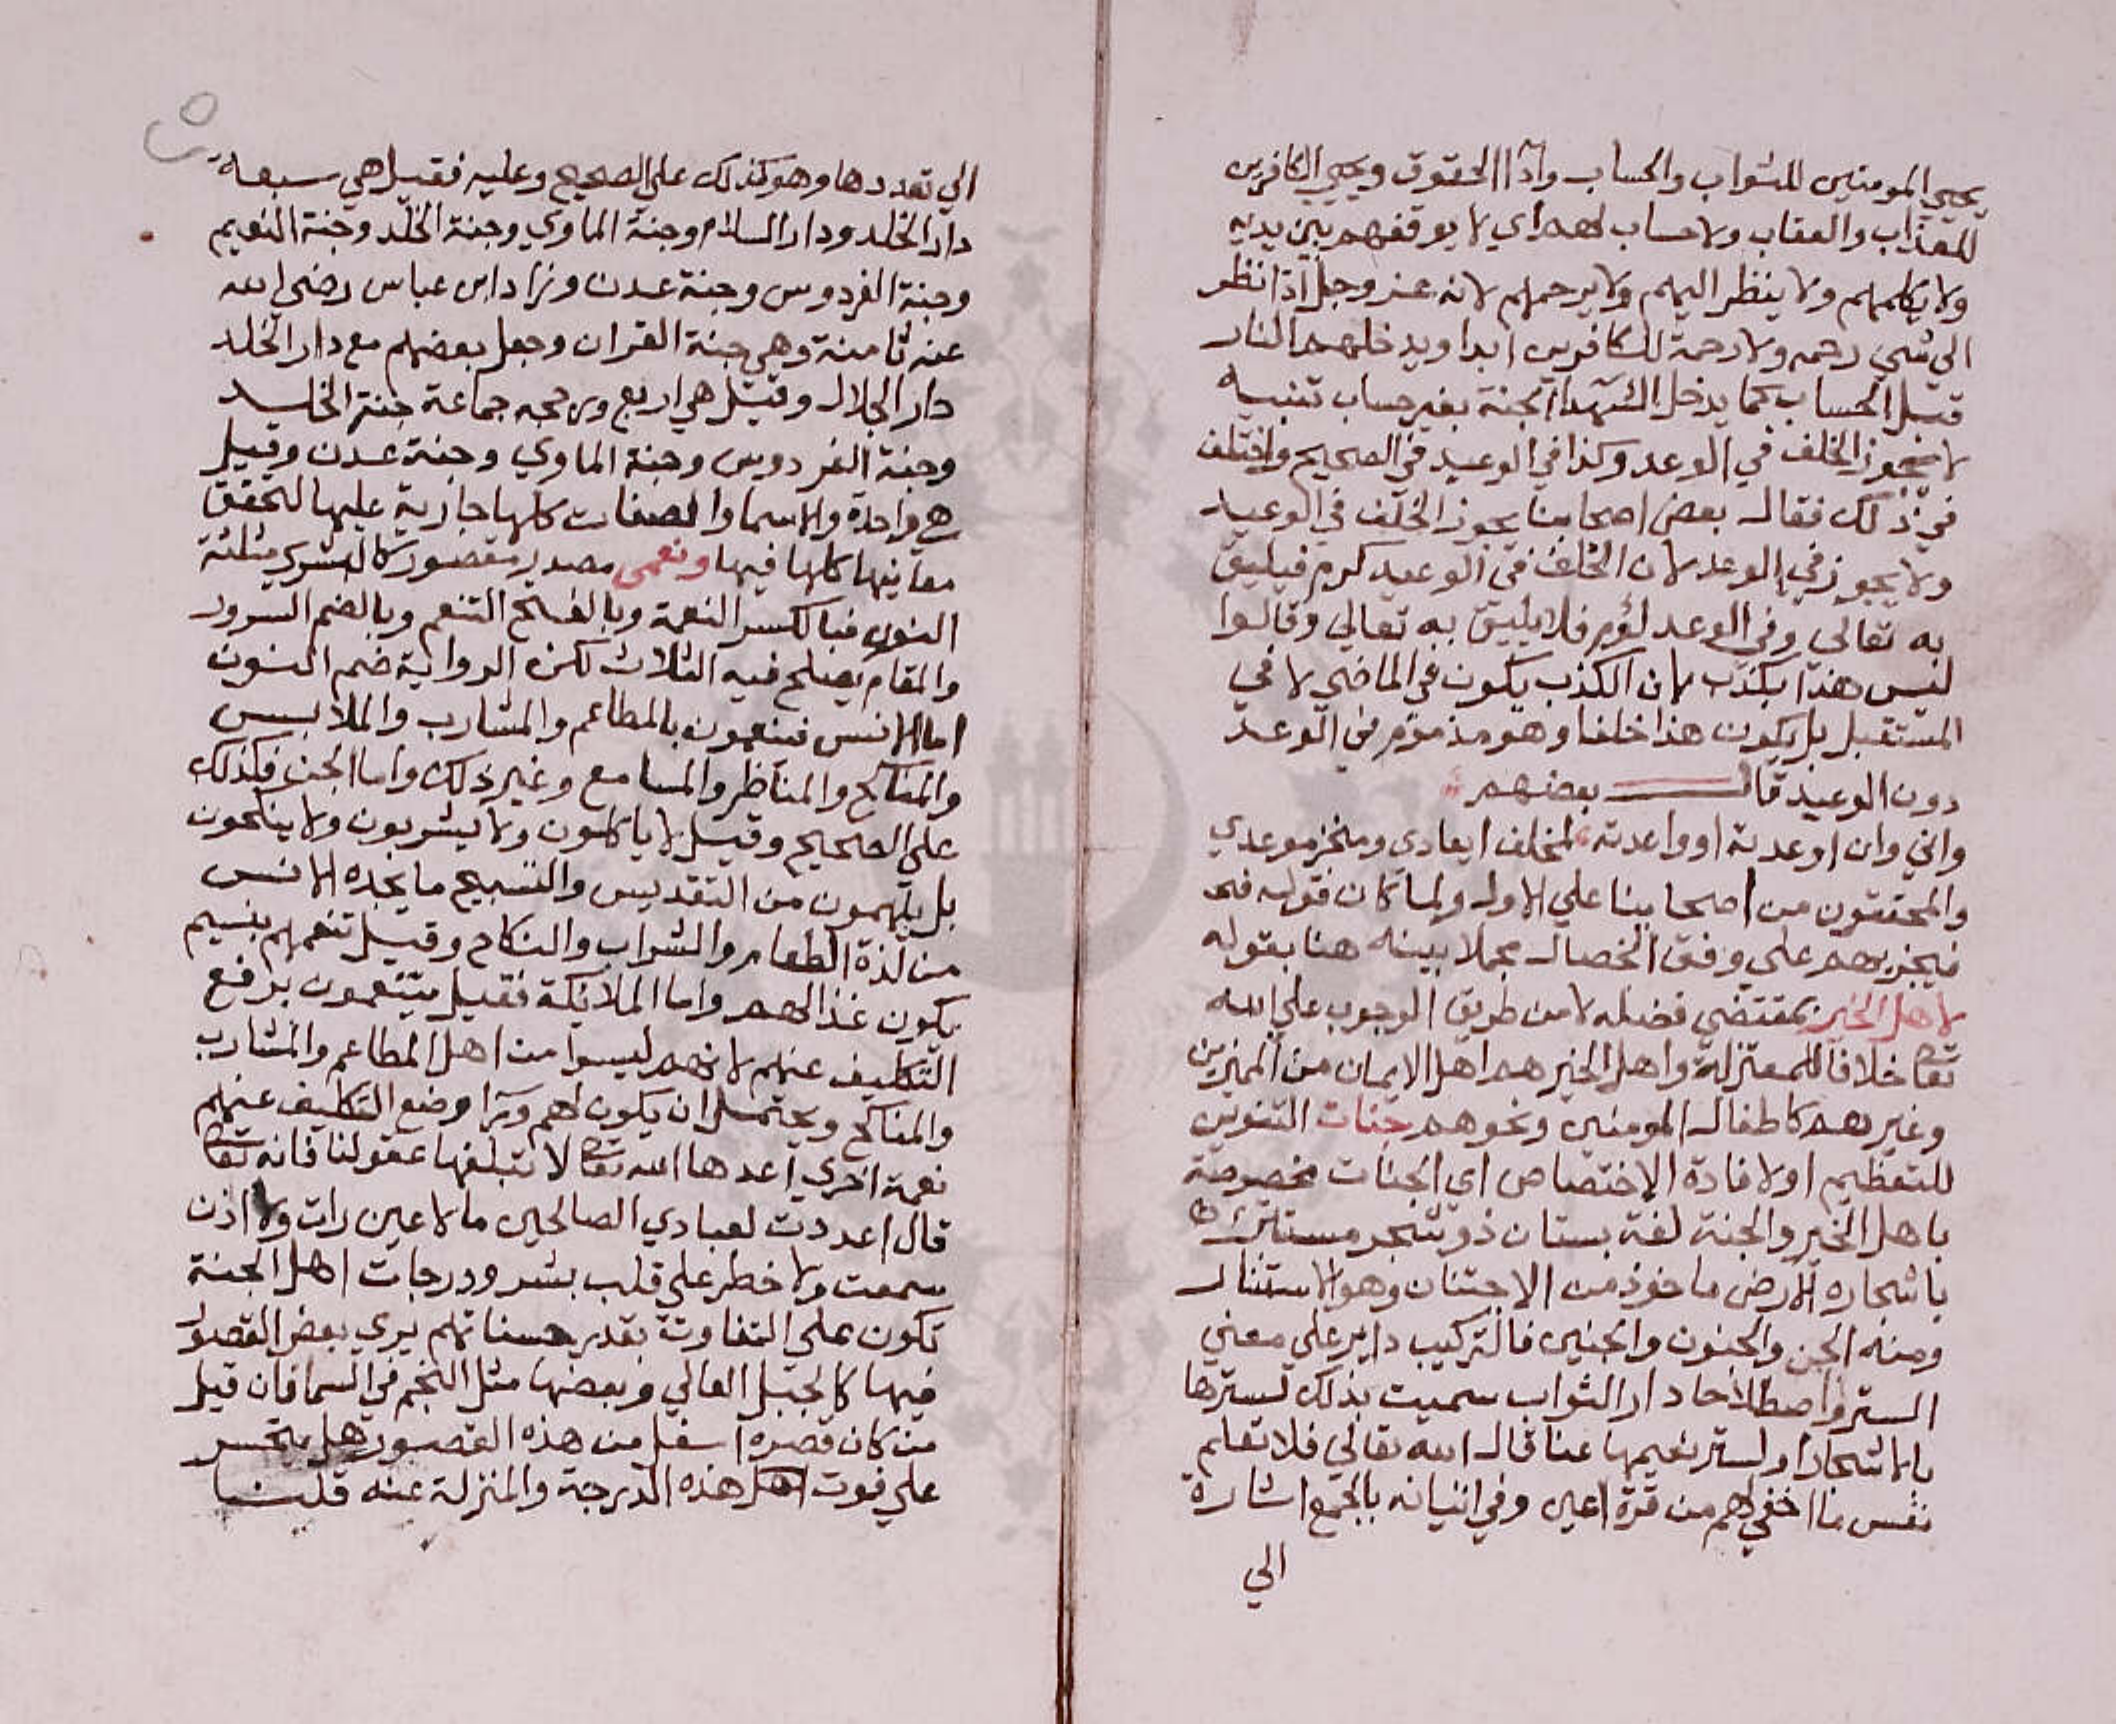 يحيي المومنين للثواب والحساب واذا الحقوق ويحيي الكافرين
للعذاب والعقاب ولا حساب لهم اي لا يوقفهم بين يديه
ولا يكلمهم ولا ينظر اليهم ولا يرحمهم لانه عز وجل اذا نظر
الي شي رحمه ولا رحمة للكافرين ابدا ويدخلهم النار
قبل الحساب كما يدخل الشهدا الجنة بغير حساب تنبيه
لا يجوز الخلف في الوعد وكذا في الوعيد في الصحيح واختلف
في ذلك فقال بعض اصحابنا يجوز الخلف في الوعيد
ولا يجوز في الوعد لان الخلف في الوعيد كرم فيليق
به تعالي وفي الوعد لؤم فلا يليق به تعالي وقالوا
ليس هذا بكذب لان الكذب يكون في الماضي لا في
المستقبل بل يكون هذا خلفا وهو مذموم في الوعد
دون الوعيد قال بعضهم
واني وان اوعدته او واعدته لمخلف ايعادي ومنجز موعدي
والمحققون من اصحابنا علي الاول ولما كان قوله فما
فيجزيهم علي وفق الخصال مجملا بينه هنا بقوله
لاهل الخير بمقتضي فضله لا من طريق الوجوب علي الله
تعا خلافا للمعتزلة واهل الخير هم اهل الايمان من المميزين
وغيرهم كاطفال المومنين ونحوهم جنات التنوين
للتعظيم او لافادة الاختصاص اي الجنات مخصوصة
باهل الخير والجنة لغة بستان ذو شجر مستتر
باشجاره الارض ماخوذ من الاجتنان وهو الاستتار
ومنه الجن والجنون والجنين فالتركيب داير علي معني
الستر واصطلاحا دار الثواب سميت بذلك لسترها
بالاشجار او لستر نعيمها عنا قال الله تعالي فلا تعلم
نفس ما اخفي لهم من قرة اعين وفي اتيانه بالجمع اشارة
الي
الي تعددها وهو كذلك علي الصحيح وعليه فقيل هي سبعة
دار الخلد ودار السلام وجنة الماوي وجنة الخلد وجنة النعيم
وجنة الفردوس وجنة عدن وزاد ابن عباس رضي الله
عنه ثامنة وهي جنة القران وجعل بعضهم مع دار الخلد
دار الجلال وقيل هي اربع ورجحه جماعة جنة الخلد
وجنة الفردوس وجنة الماوي وجنة عدن وقيل
هي واحدة والاسما والصفات كلها جارية عليها لتحقق
معانيها كلها فيها ونعمى مصدر مقصور كالبشري مثلثة
النون فبالكسر النعمة وبالفتح التنعم وبالضم السرور
والمقام يصلح فيه الثلاث لكن الرواية ضم النون
اما الانس فينعمون بالمطاعم والمشارب والملابس
والمناكح والمناظر والمسامع وغير ذلك واما الجن فكذلك
علي الصحيح وقيل لا ياكلون ولا يشربون ولا ينكحون
بل يلهمون من التقديس والتسبيح ما يجده الانس
من لذة الطعام والشراب والنكاح وقيل تنعمهم بنسيم
يكون غذا لهم واما الملايكة فقيل يتنعمون برفع
التكليف عنهم لانهم ليسوا من اهل المطاعم والمشارب
والمناكح ويحتمل ان يكون لهم ورا وضع التكليف عنهم
نعمة اخري اعدها الله تعا لا تبلغها عقولنا فانه تعا
قال اعددت لعبادي الصالحين ما لا عين رات ولا اذن
سمعت ولا خطر علي قلب بشر ودرجات اهل الجنة
تكون علي التفاوت بقدر حسناتهم يري بعض القصور
فيها كالجبل العالي وبعضها مثل النجم في السما فان قيل
من كان قصره اسفل من هذه القصور هل يتحسر
علي فوت اهل هذه الدرجة والمنزلة عنه قلنا